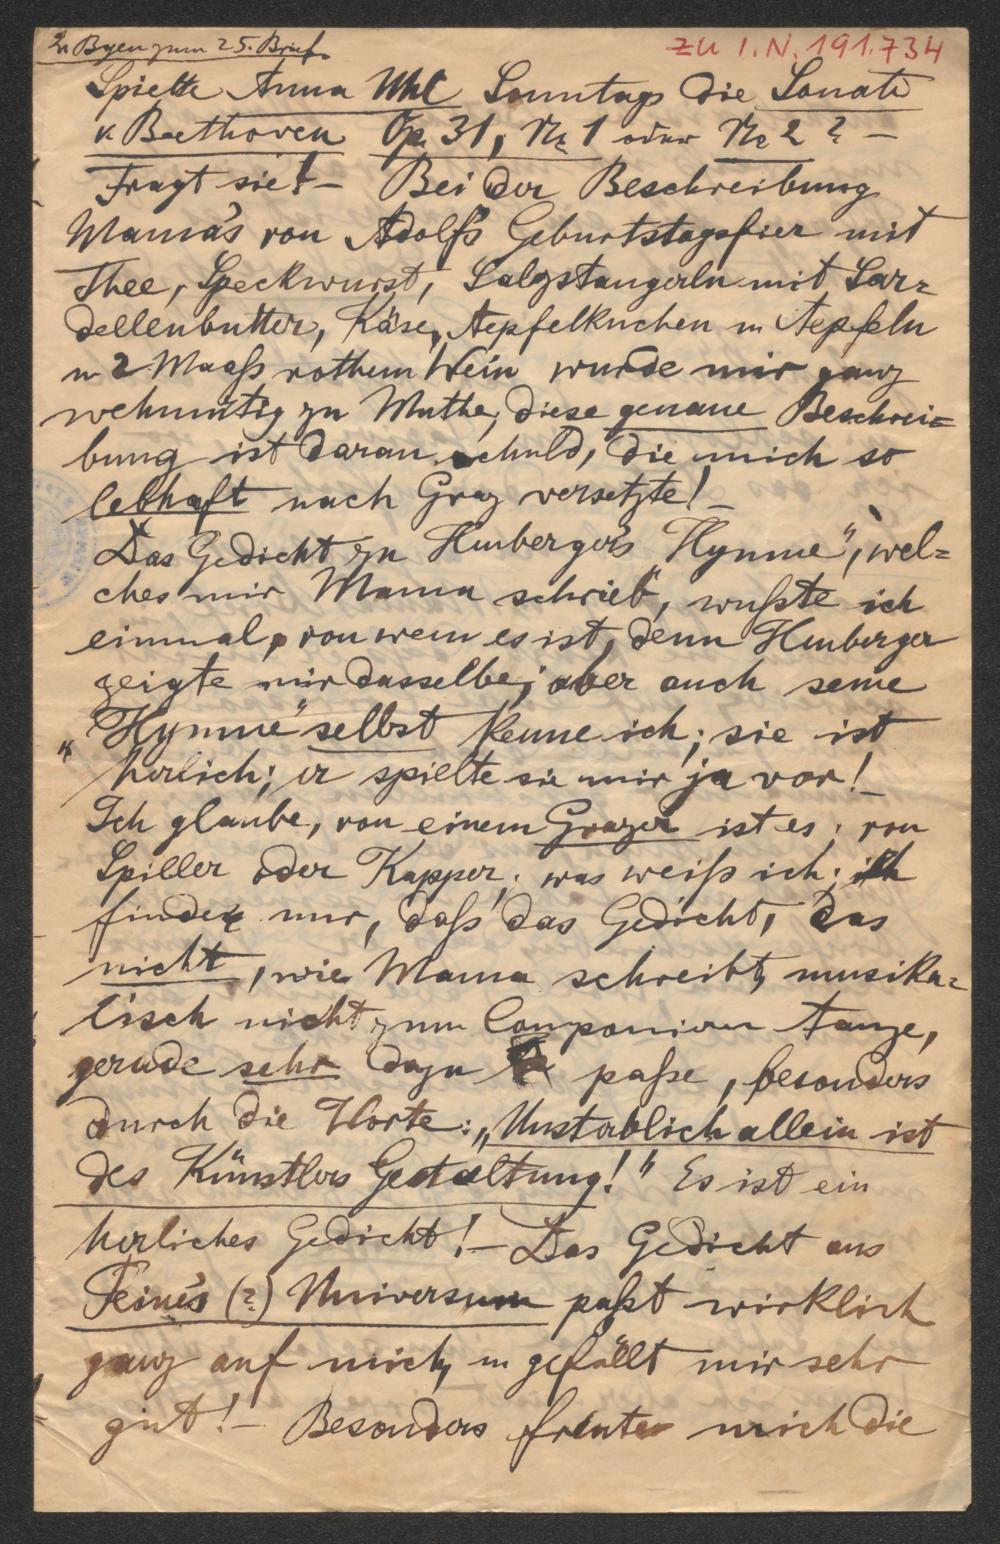 2n Bogen zum 25. Brief.
zu I.N. 191.734
Spielte Anna Uhl Sonntags die Sonate
v. Beethoven Op. 31, Nr. 1 oder Nr. 2 ? —
Fragt sie! — Bei der Beschreibung
Mama's von Adolfs Geburtstagsfeier mit
Thee, Speckwurst, Salzstangerln mit Sar=
dellenbutter, Käse, Aepfelkuchen u Aepfeln
u 2 Maaß rothem Wein wurde mir ganz
wehmütig zu Muthe, diese genaue Beschrei=
bung ist daran schuld, die mich so
lebhaft nach Graz versetzte! —
Das Gedicht zu Hurberger's "Hymne", wel=
ches mir Mama schrieb, wußte ich
einmal, von wem es ist, denn Hurberger
zeigte mir dasselbe; aber auch seine
"Hymne" selbst kenne ich; sie ist
herlich; er spielte sie mir ja vor! —
Ich glaube, von einem Grazer ist es, von
Spiller oder Kapper; was weiß ich; ich
finde nur, daß das Gedicht, das
nicht, wie Mama schreibt, musika=
lisch nicht zum Componieren tauge,
gerade sehr dazu paße, besonders
durch die Worte: „Unsterblich allein ist
des Künstlers Gestaltung!" Es ist ein
herliches Gedicht! — Das Gedicht aus
Feine's (?) Universum paßt wirklich
ganz auf mich, u gefällt mir sehr
gut! — Besonders freute mich die